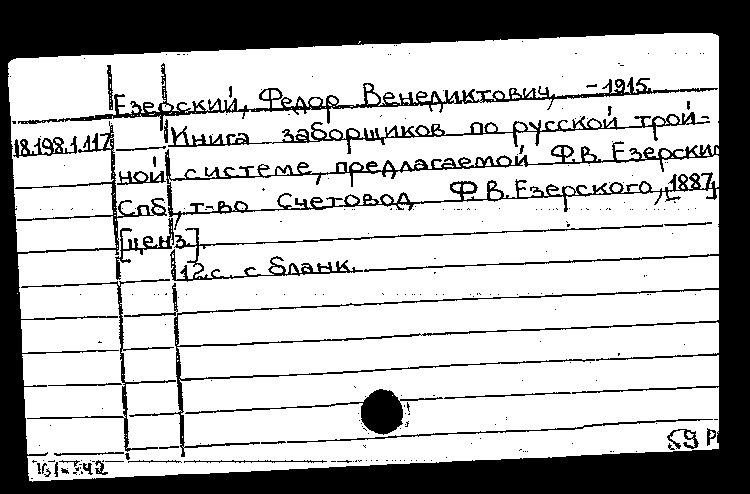 Езерский, Федор Венедиктович, -1915.
18.198.1.117 Книга заборщиков по русской трой=
ной системе, предлагаемой Ф.В. Езерски
Спб, т-во Счетовод Ф.В.Езерского, [1887]
[ценз.].
12 с. с бланк.